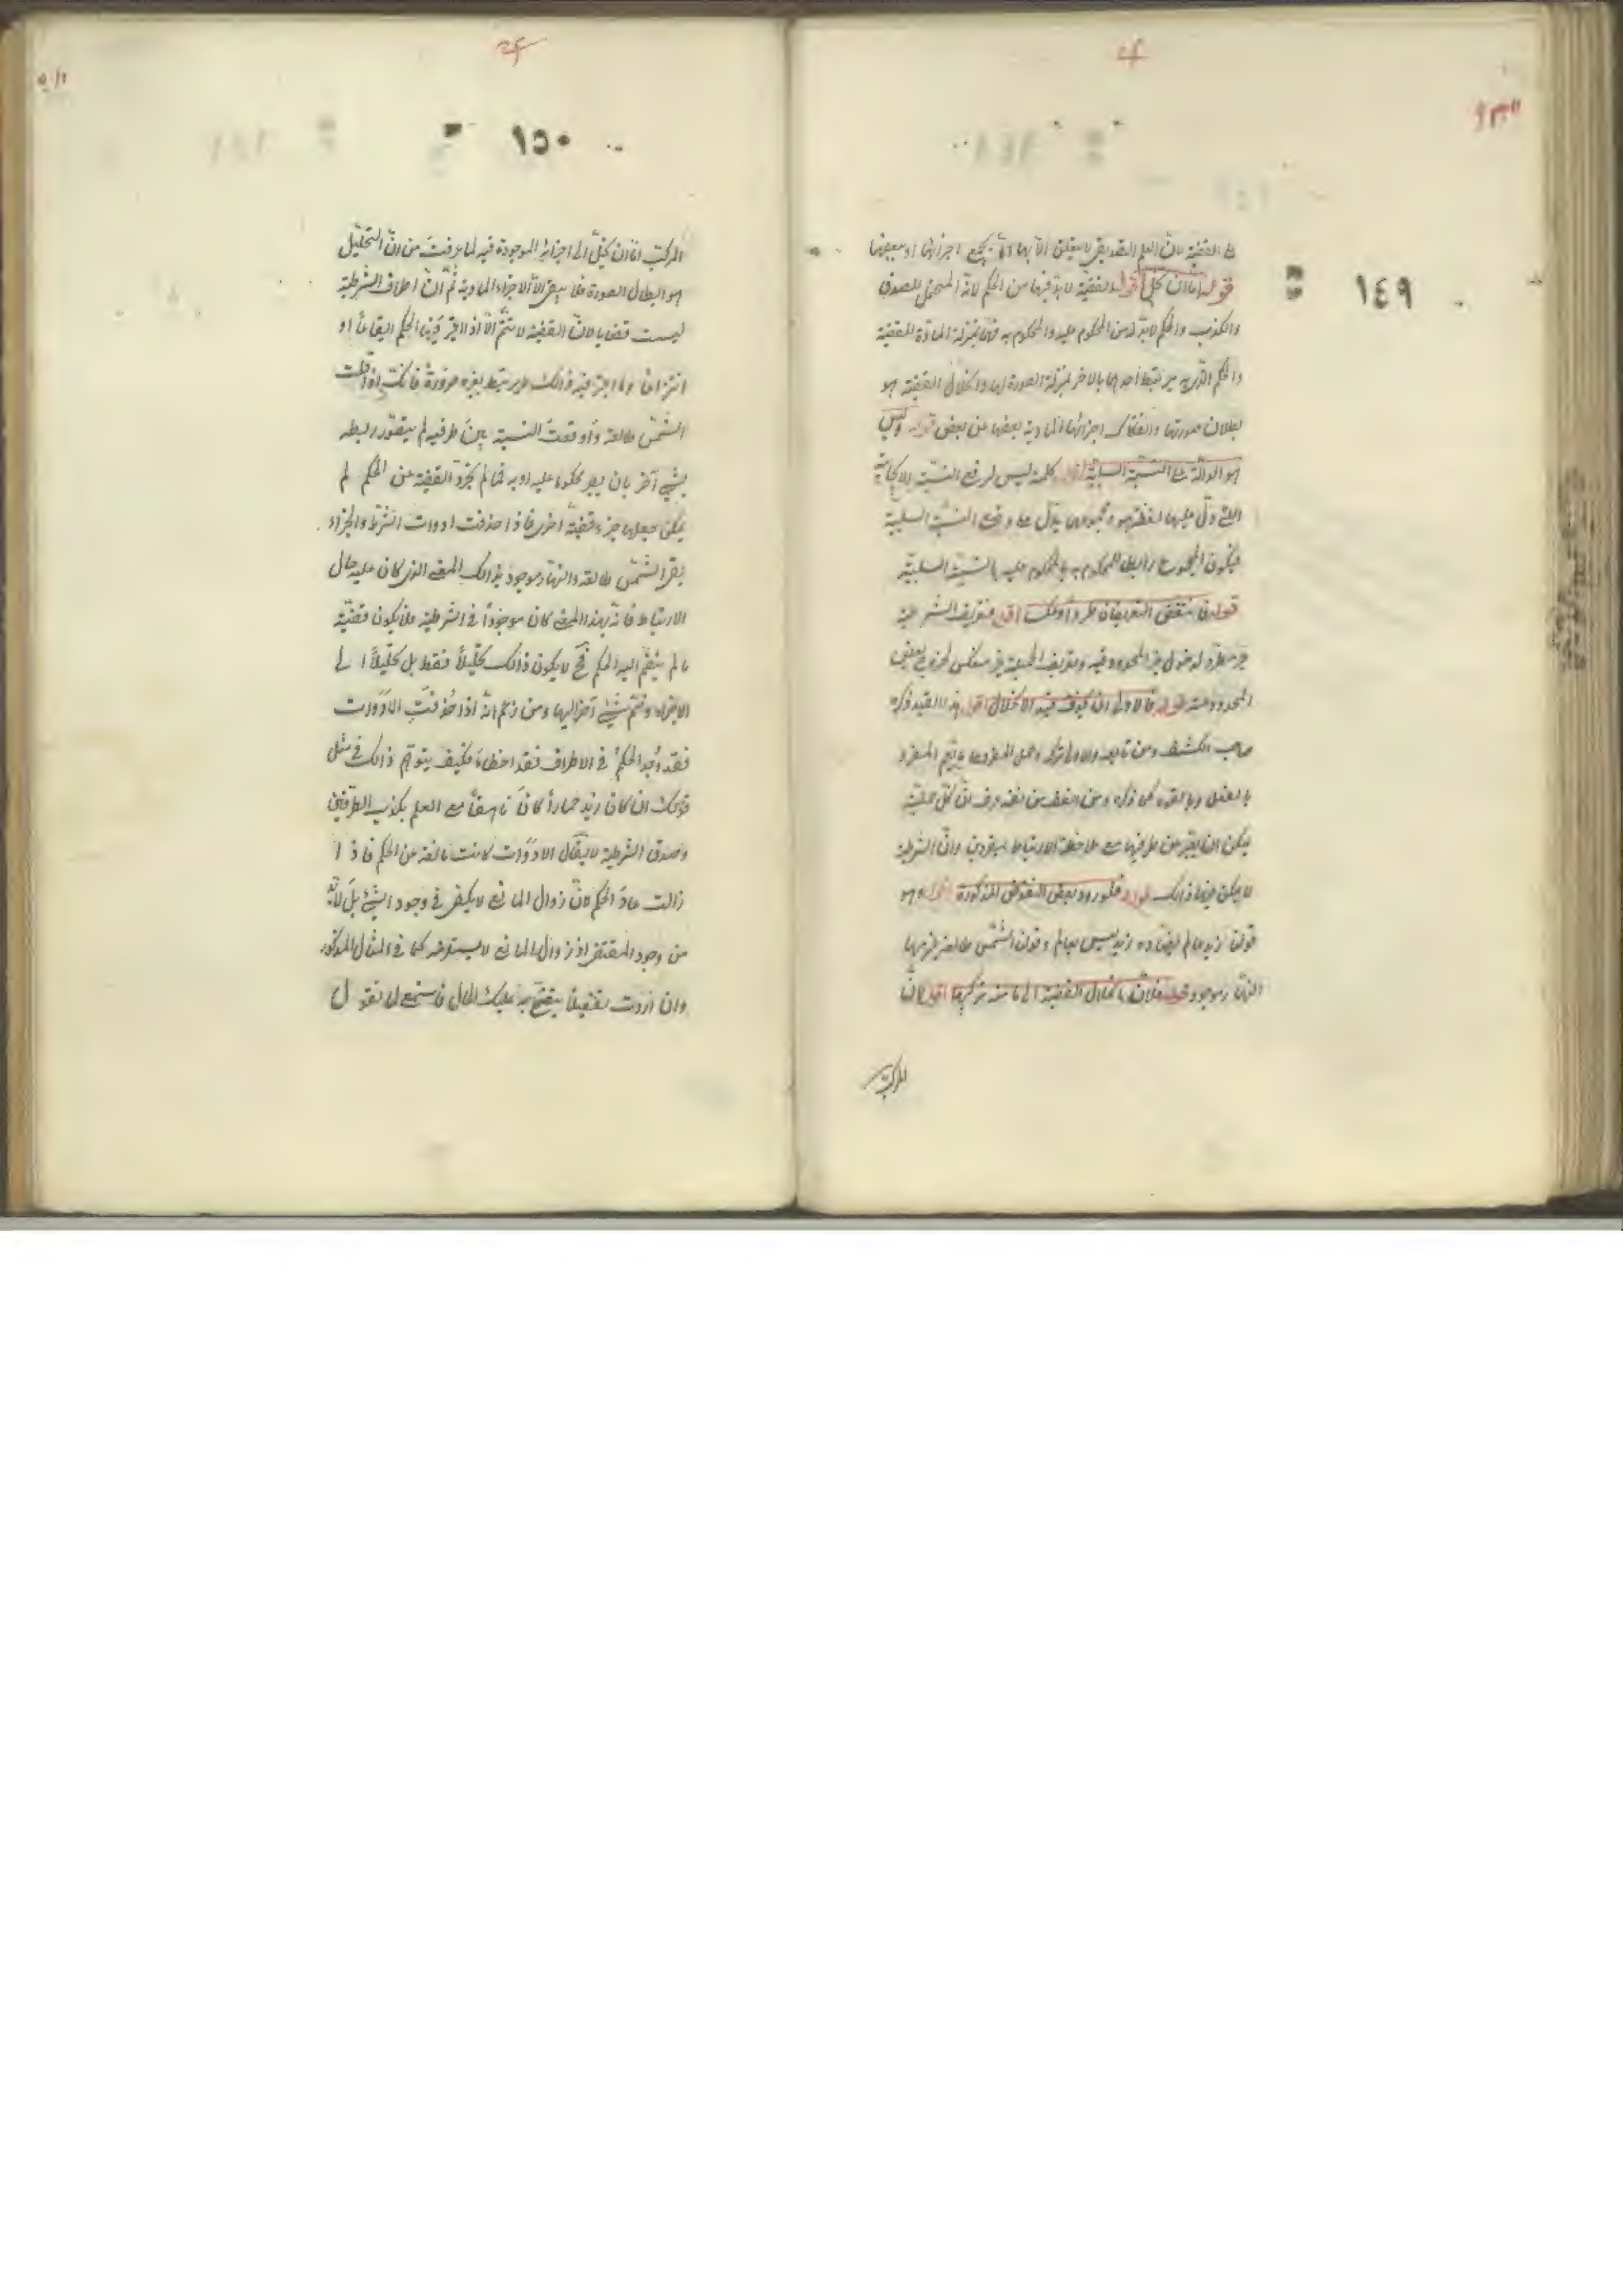 ١٤٩
القضية لان العلم التصديقى لا يتعلق الا بها اما بجميع اجزائها او ببعضها
قوله اما ان تنحل اقول القضية لا بد فيها من الحكم لانه المحتمل للصدق
والكذب والحكم لا بد له من المحكوم عليه والمحكوم به فهما بمنزلة المادة للقضية
والحكم الذى به يرتبط احدهما بالاخر بمنزلة الصورة لها وانحلال القضية هو
بطلان صورتها وانفكاك اجزائها المادية بعضها عن بعض قوله وليس
هو الدالة على النسبة السلبية اقول كلمة ليس لرفع النسبة الايجابية
التى دل عليها لفظة هو ومجموعهما يدل على رفع النسبة السلبية
فيكون المجموع رابطة للمحكوم به بالمحكوم عليه بالنسبة السلبية
قوله فانتقض التعريفان طردا وعكسا اقول فتعريف الشرطية
غير مطرد لدخول غير المحدود فيه وتعريف الحملية غير منعكس لخروج بعض
المحدود عنه قوله فالاولى ان يحذف قيد الانحلال اقول هذا القيد ذكره
صاحب الكشف ومن تابعه والاولى تركه وحمل المفرد على ما يعم المفرد
بالفعل وبالقوة كما ذكره ومن انصف من نفسه عرف ان كل حملية
يمكن ان يعبر عن طرفيها مع ملاحظة الارتباط بمفردين وان الشرطية
لا يمكن فيها ذلك قوله فلورود بعض النقوض المذكورة اقول وهو
قولنا زيد عالم يضاده زيد ليس بعالم وقولنا الشمس طالعة يلزمها
النهار موجود قوله فلان انحلال القضية الى ما منه تركيبها اقول لان
المركب
١٥٠
المركب اما ان ينحل الى اجزائه الموجودة فيه لما عرفت من ان التحليل
هو ابطال الصورة فلا يبقى الا الاجزاء المادية ثم ان اطراف الشرطية
ليست قضايا لان القضية لا تتم الا اذا اعتبر فيها الحكم ايقاعا او
انتزاعا وما اعتبر فيه ذلك لم يرتبط بغيره ضرورة فانك اذا قلت
الشمس طالعة واوقعت النسبة بين طرفيه لم يتصور ربطه
بشئ آخر بان يصير محكوما عليه او به فما لم يجرد القضية عن الحكم لم
يمكن جعلها جزء قضية اخرى فاذا حذفت ادوات الشرط والجزاء
بقى الشمس طالعة والنهار موجود بذلك المعنى الذى كان عليه حال
الارتباط فانه بهذا المعنى كان موجودا فى الشرطية فلا يكون قضية
ما لم ينضم اليه الحكم فح لا يكون ذلك تحليلا فقط بل تحليلا الى
الاجزاء وضم شئ آخر اليها ومن زعم انه اذا حذفت الادوات
فقد وجد الحكم فى الاطراف فقد اخطاء فكيف يتوهم ذلك فى مثل
قولك ان كان زيد حمارا كان ناهقا مع العلم بكذب الطرفين
وصدق الشرطية لا يقال الادوات كانت مانعة من الحكم فاذا
زالت عاد الحكم لان زوال المانع لا يكفى فى وجود الشئ بل لا بد
من وجود المقتضى اذ زوال المانع لا يستلزمه كما فى المثال المذكور
وان اردت تفصيلا يتضح به عليك الحال فاستمع لما نقول